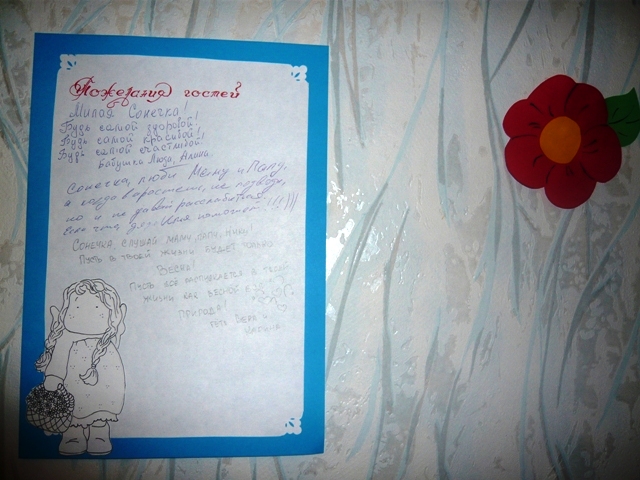 Пожелания гостей
Милая Сонечка!
Будь самой здоровой!
Будь самой красивой!!
Будь самой счастливой!!
Бабушка Люда, Алина
Сонечка, люби Маму и Папу,
а когда вырастешь, не позволяй,
но и не давай расслабиться.
Если что, дядя Илья поможет !!!)))
Сонечка, слушай маму, папу,
Пусть в твоей жизни будет только
Весна!
Пусть всё распускается в твоей
жизни как весной
природа!
тётя Вера и